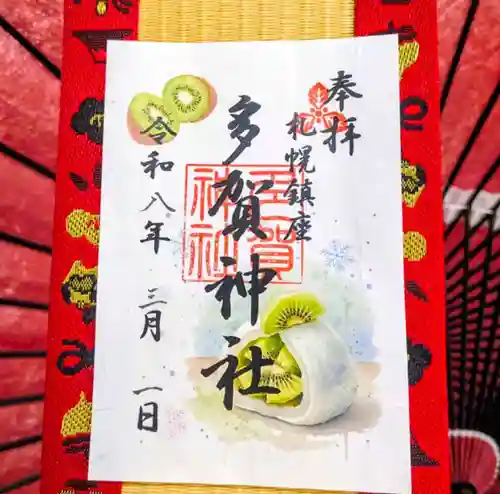 奉拝
札幌鎮座
多賀神社
多賀神社
令和八年 三月 一日